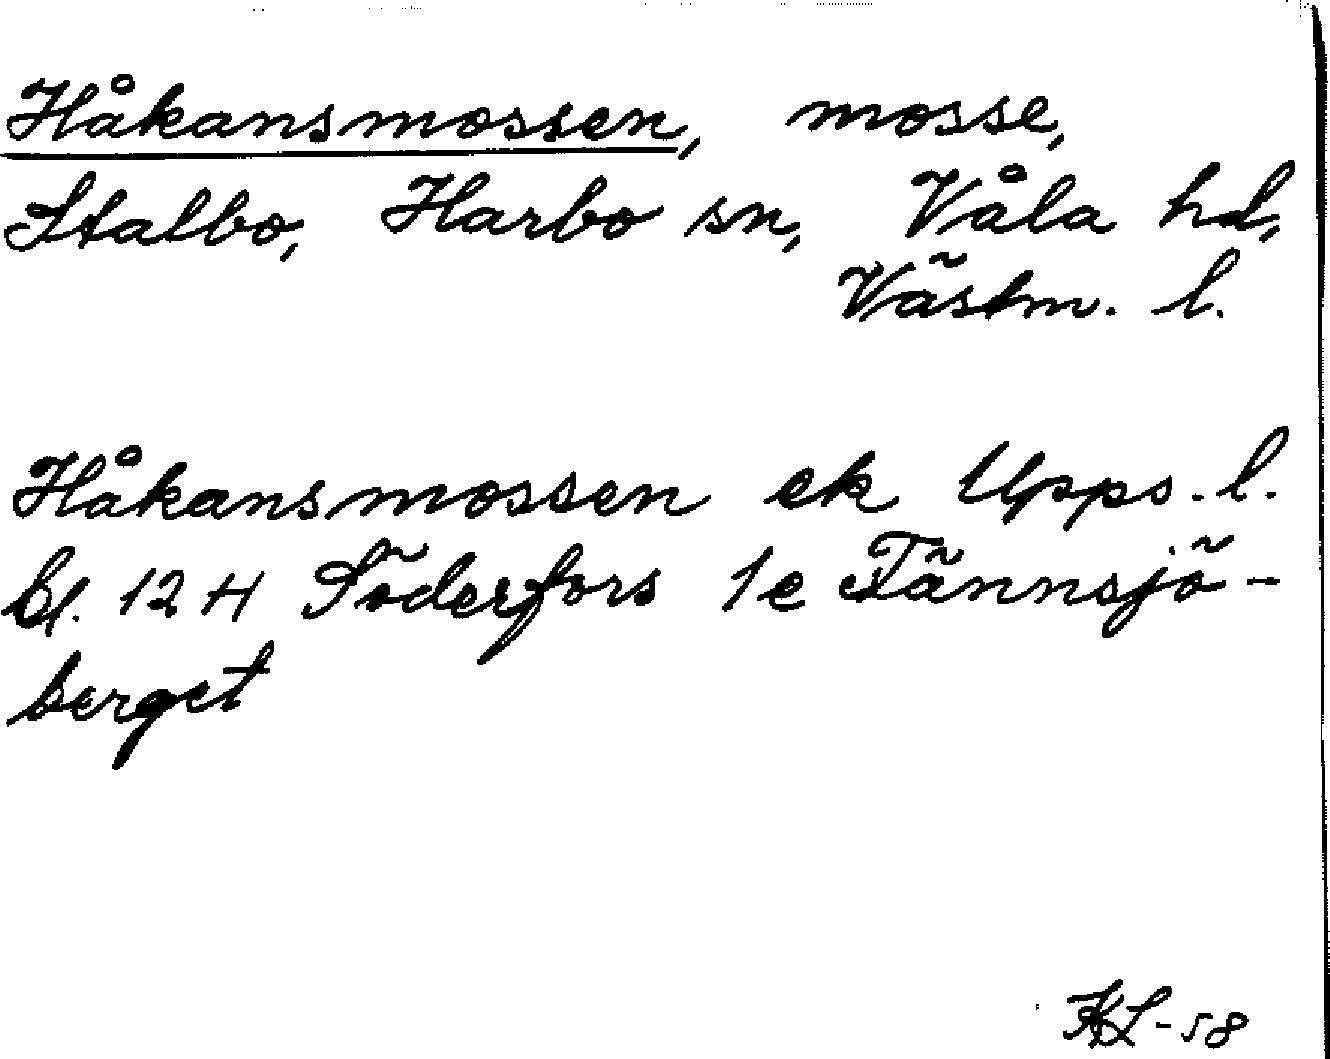 Håkansmossen, mosse,
Stalbo, Harbo sn, Våla hd,
Västm. l.
Håkansmossen ek Upps. l.
bl. 12 H Söderfors 1e Tännsjö-
berget
KL-58